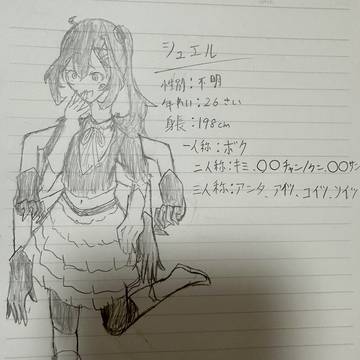 シュエル
性別:不明
年れい:26さい
身長:198cm
一人称:ボク
二人称:キミ、〇〇チャン/クン、〇〇サン
三人称:アンタ、アイツ、コイツ、ソイツ